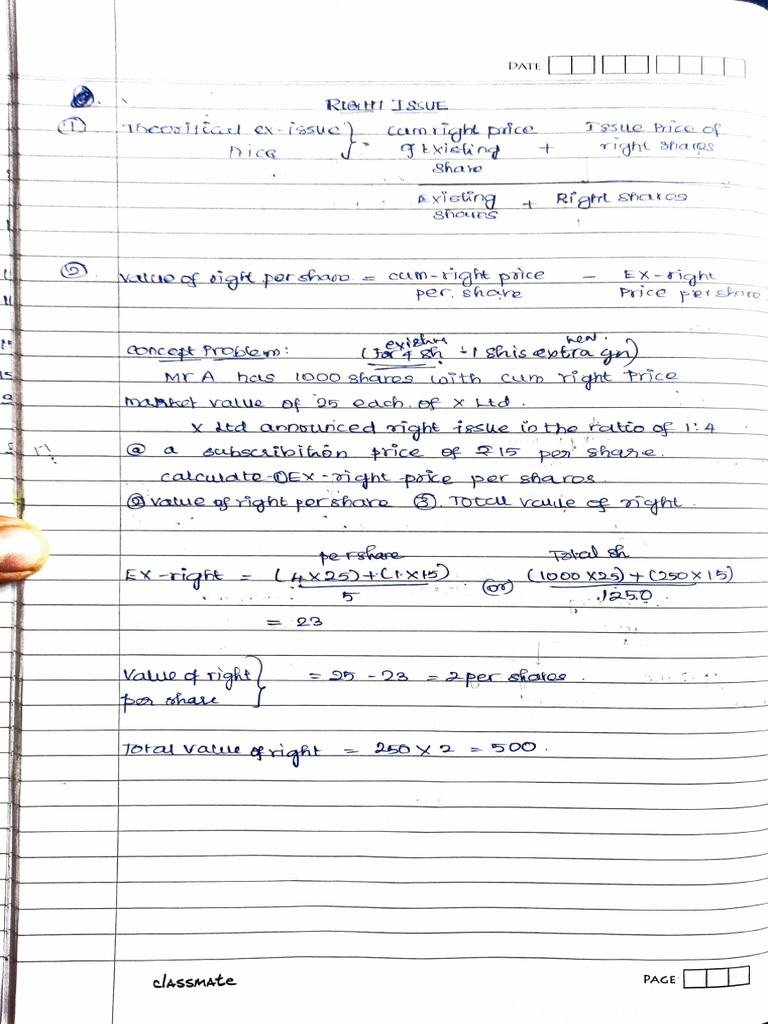 DATE
RIGHT ISSUE
① Theoritical ex-issue } = cum right price + Issue Price of
Price of Existing right shares
share
Existing + Right shares
shares
② Value of right per share = cum-right price − EX-right
per share Price per share
existing new
Concept Problem: (for 4 sh - 1 sh is extra gn)
Mr A has 1000 shares with cum right Price
market value of 25 each of X Ltd.
X Ltd announced right issue in the ratio of 1:4
@ a subscribition price of ₹15 per share.
calculate ① EX-right price per shares
② value of right per share ③. Total value of right.
per share Total sh
EX-right = (4×25)+(1×15) (or) (1000×25)+(250×15)
5 1250
= 23
Value of right } = 25 - 23 = 2 per shares.
per share
Total value of right = 250 × 2 = 500.
classmate PAGE